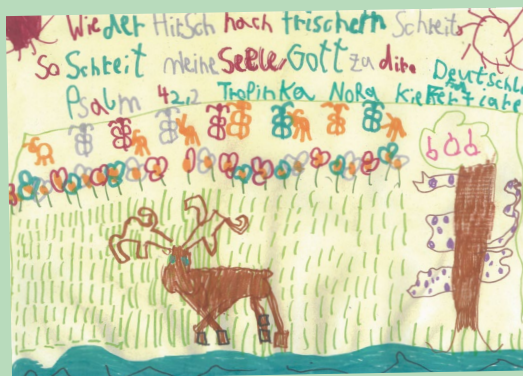 Wie der Hirsch nach frischem Schreit,
So Schreit meine Seele, Gott zu dir.
Psalm 42,2 Tropinka Nora
Deutschl